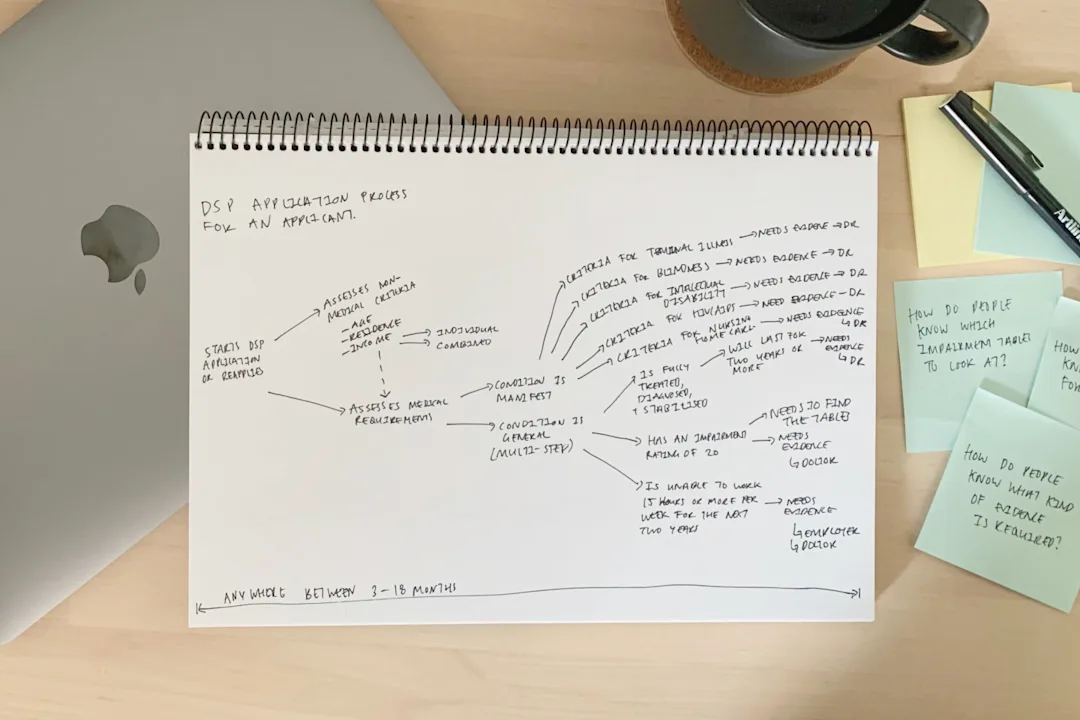 DSP APPLICATION PROCESS
FOR AN APPLICANT.
STARTS DSP
APPLICATION
OR REAPPLIES
ASSESSES NON-
MEDICAL CRITERIA
- AGE
- RESIDENCE
- INCOME
INDIVIDUAL
COMBINED
ASSESSES MEDICAL
REQUIREMENTS
CONDITION IS
MANIFEST
CRITERIA FOR TERMINAL ILLNESS → NEEDS EVIDENCE → DR
CRITERIA FOR BLINDNESS → NEEDS EVIDENCE → DR
CRITERIA FOR INTELLECTUAL
DISABILITY → NEEDS EVIDENCE → DR
CRITERIA FOR HIV/AIDS → NEED EVIDENCE - DR
CRITERIA FOR NURSING
HOME CARE → NEEDS EVIDENCE
↳ DR
CONDITION IS
GENERAL
(MULTI-STEP)
IS FULLY
TREATED,
DIAGNOSED,
+ STABILISED
WILL LAST FOR
TWO YEARS OR
MORE
NEEDS
EVIDENCE
↳ DR
HAS AN IMPAIRMENT
RATING OF 20
NEEDS TO FIND
THE TABLES
NEEDS
EVIDENCE
↳ DOCTOR
IS UNABLE TO WORK
15 HOURS OR MORE PER
WEEK FOR THE NEXT
TWO YEARS
NEEDS
EVIDENCE
↳ EMPLOYER
↳ DOCTOR
ANYWHERE BETWEEN 3-18 MONTHS
HOW DO PEOPLE
KNOW WHICH
IMPAIRMENT TABLES
TO LOOK AT?
HOW DO PEOPLE
KNOW WHAT KIND
OF EVIDENCE
IS REQUIRED?
HOW